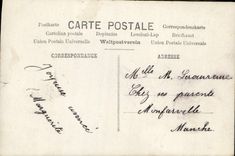 Postkarte CARTE POSTALE Correspondenzkarte
Cartolina postale Dopisnice Levelező-Lap Briefkaart
Union Postale Universelle Weltpostverein Union Postale Universelle
CORRESPONDANCE
ADRESSE
Joyeuse année
Marguerite
Melle M. Lecouvreur
Chez ses parents
Monfarville
Manche